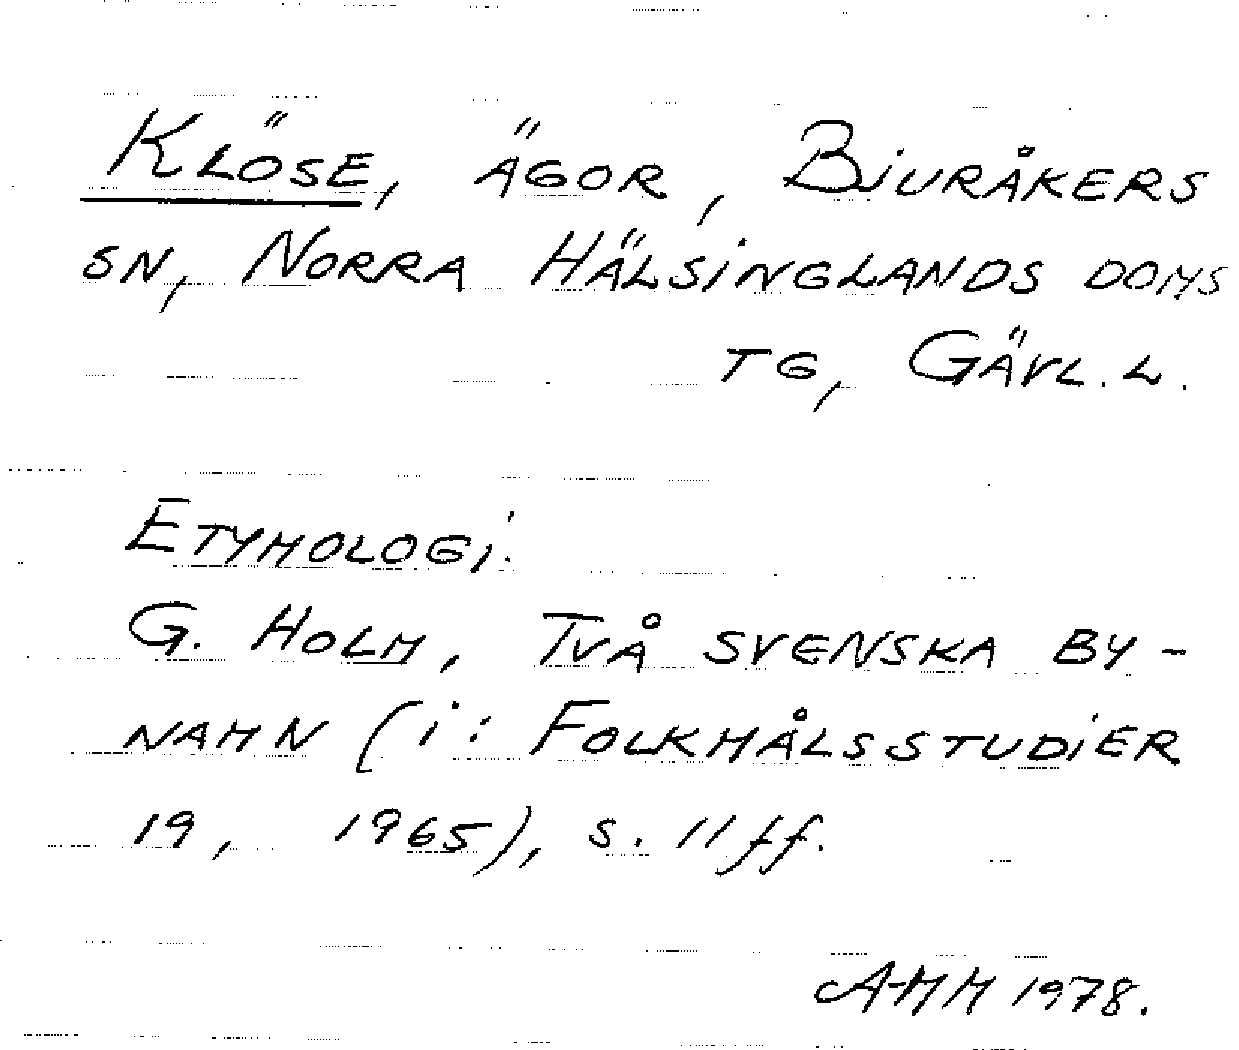 KLÖSE, ÄGOR, BJURÅKERS
SN, NORRA HÄLSINGLANDS DOMS
TG, GÄVL.L.
ETYMOLOGI:
G. HOLM, TVÅ SVENSKA BY-
NAMN (i: FOLKMÅLSSTUDIER
19, 1965), s. 11 ff.
A-MH 1978.